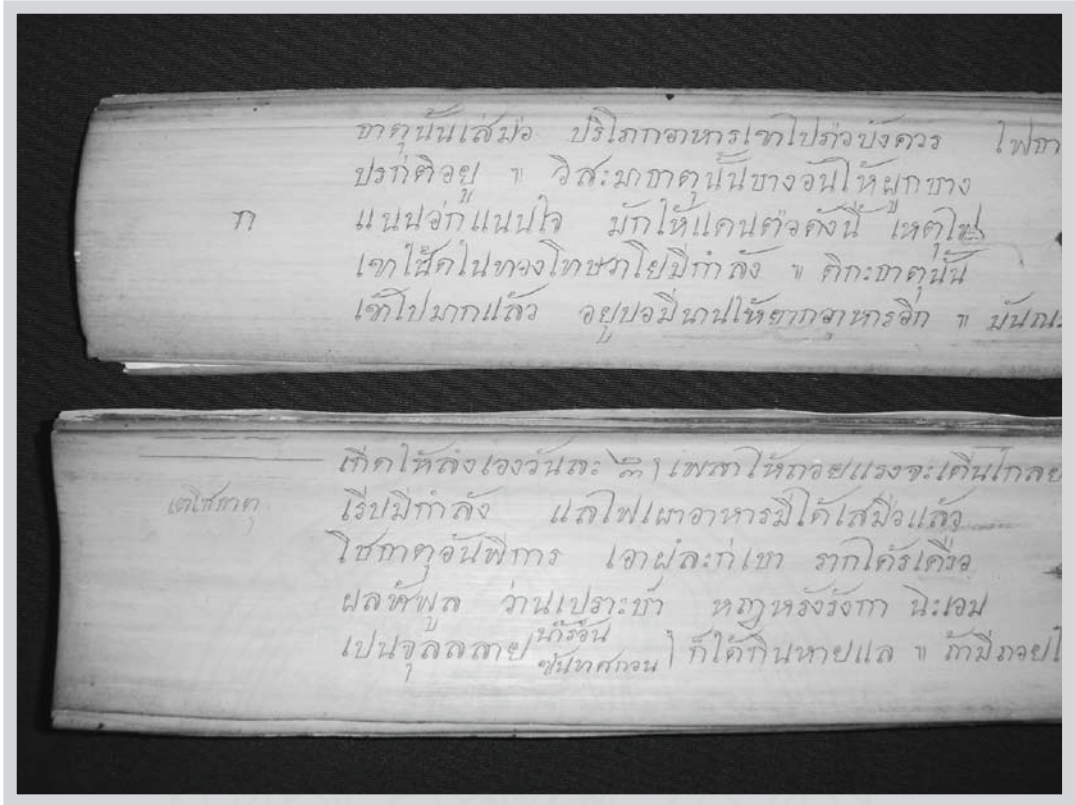 ธาตุนั้นเสมอ ปริโภกอาหารเขาไปก่วบังควร ไฟธา
ปรกติอยู่ ๚ วิสะมาธาตุนั้นบางอันให้ผูกบาง
ก แนนอ่กแนนใจ มักให้แคนต่อดังนี้ เหตุไฟ
กำลัง ๚ ติกะธาตุนั้น
เข้าไปมากแล้ว อยู่บอมินานให้ยากอาหารอีก ๚
เกิดให้ลงเองวันละ ๓ เพลาให้ถอยแรงจะเดินไกล
เตโชธาตุ เรีบมีกำลัง แลไฟเผาอาหารมิได้เสมือแล้ว
โชธาตุอันพิการ เอาผลกเบา รากไคร้เครือ
ผลพิพูล ว่านเปราะ นิะเอม
เปนจุลลลาย น้ำร้อน
ก็ได้กินหายแล ๚ ถ้ามิถอย